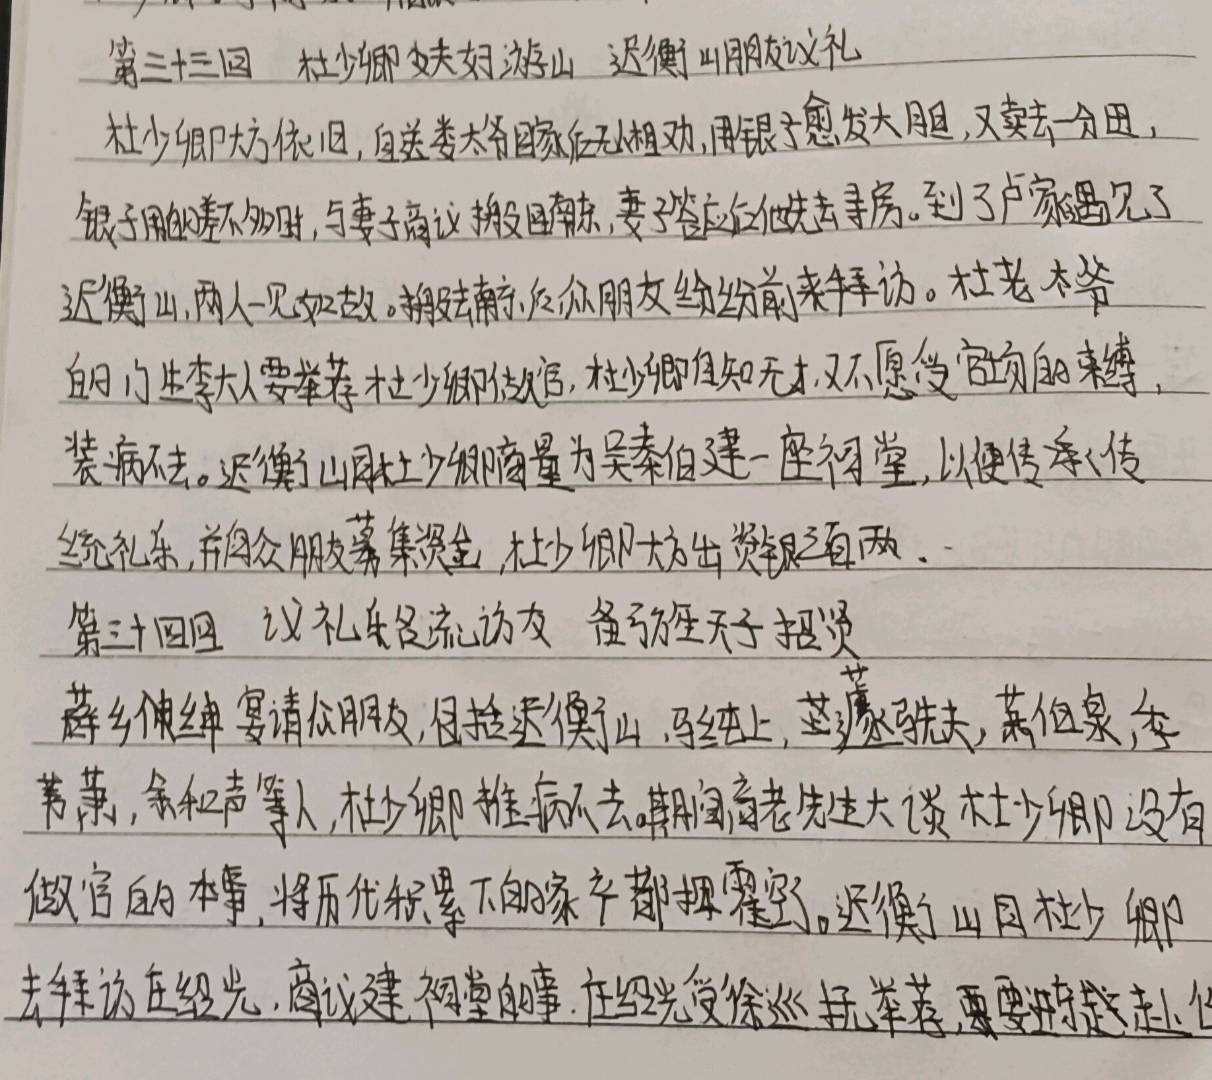 第三十三回 杜少卿夫妇游山 迟衡山朋友议礼
杜少卿大方依旧,自送娄太爷回家后无人相劝,用银子愈发大胆,又卖去一分田,
银子用的差不多时,与妻子商议搬回南京,妻子答应后他先去寻房。到了卢家遇见了
迟衡山,两人一见如故。搬去南京后众朋友纷纷前来拜访。杜老太爷
的门生李大人要举荐杜少卿做官,杜少卿自知无才,又不愿受官场的束缚,
装病不去。迟衡山同杜少卿商量为吴泰伯建一座祠堂,以便传承传
统礼乐,并向众朋友募集资金,杜少卿大方出资银三百两.
第三十四回 议礼乐名流访友 备弓旌天子招贤
薛乡绅宴请众朋友,包括迟衡山,马纯上,蘧駪夫,萧伯泉,季
苇萧,余和声等人,杜少卿推病不去。期间高老先生大谈杜少卿没有
做官的本事,将历代积累下的家产都挥霍空了。迟衡山同杜少卿
去拜访庄绍光,商议建祠堂的事.庄绍光受徐巡抚举荐,要进京赴